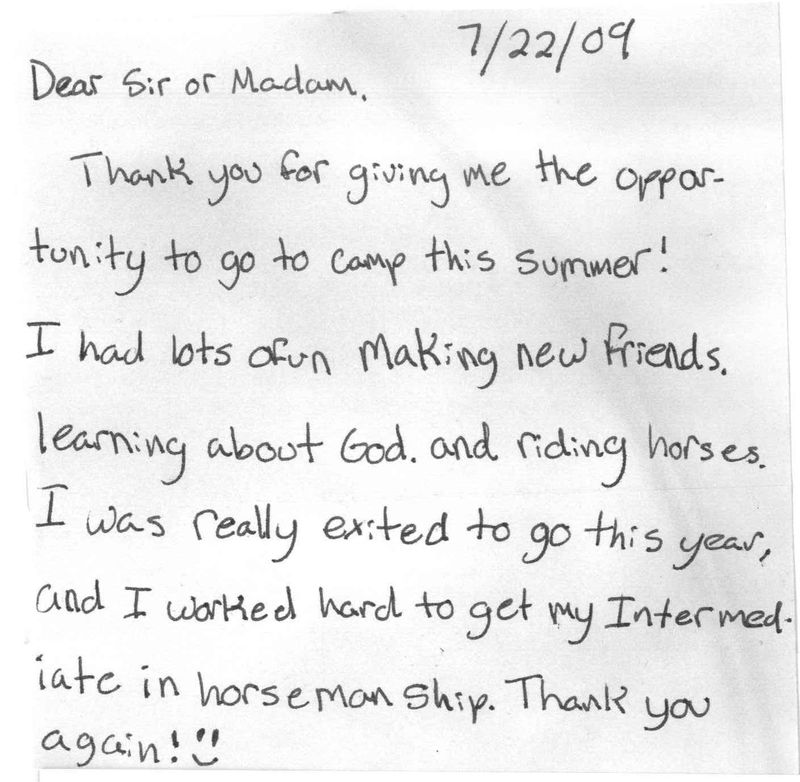 7/22/09
Dear Sir or Madam,
Thank you for giving me the oppor-
tunity to go to camp this summer!
I had lots ofun making new friends,
learning about God, and riding horses.
I was really exited to go this year,
and I worked hard to get my Intermed-
iate in horsemanship. Thank you
again!